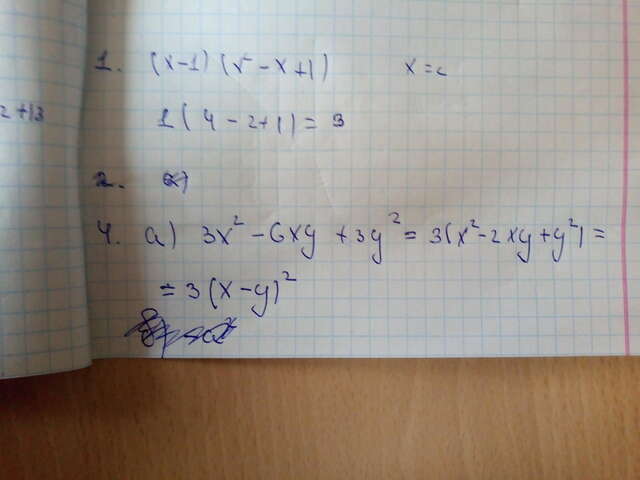 1. (x-1)(x²-x+1) x=2
2+13
1(4-2+1)=3
2. а)
4. а) 3x²-6xy+3y²=3(x²-2xy+y²)=
=3(x-y)²